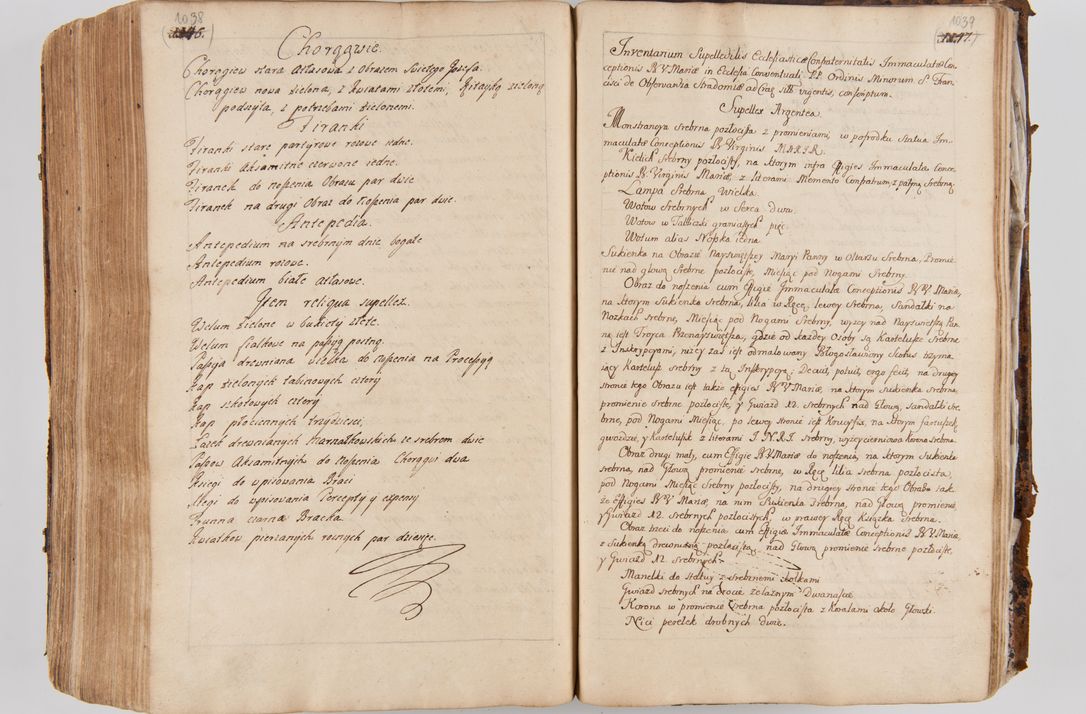 1038
Chorągwie.
Chorągiew stara Atłasowa z Obrazem Swiętego Jozefa.
Chorągiew nowa zielona, z Kwiatami złotemi, Kitayką zieloną
podszyta, z potrzebami zielonemi.
Firanki
Firanki stare partyrowe rozowe iedne.
Firanki Aksamitne czerwone iedne.
Firanek do noszenia Obrazu par dwie
Firanek na drugi Obraz do noszenia par dwie.
Antepedia.
Antepedium na srebrnym dnie bogate
Antepedium rozowe.
Antepedium białe atłasowe.
Item reliqua supellex.
Welum zielone w bukiety złote.
Welum fialkowe na passyą postną.
Passya drewniana wielka do noszenia na Processyą
Kap zielonych tabinowych cztery
Kap szkotowych cztery
Kap płociennych trzydzieści,
Lasek drewnianych Marszałkowskich ze srebrem dwie
Passow Aksamitnych do noszenia Chorągwi dwa
Księgi do wpisowania Braci
Xięgi do wpisowania Percepty y expensy
Trunna czarna Bracka.
Kwiatkow pierzanych roznych par dziesięć.
1039
Inventarium Supellectilis Ecclesiasticæ Confraternitatis Immaculatæ Con-
ceptionis B. V. Mariæ in Ecclesia Conventuali P.P. Ordinis Minorum S. Fran-
cisci de Observantia Stradomiæ ad Crac. siti vigentis, conscriptum.
Supellex Argentea.
Monstrancya srebrna pozłocista z promieniami, w posrodku Statua Im-
maculatæ Conceptionis B. Virginis MARIÆ.
Kielich srebrny pozłocisty, na ktorym infra Effigies Immaculatæ Conce-
ptionis B. Virginis Mariæ, z literami Memento Confratrum, z patyną srebrną
Lampa Srebrna Wielka.
Wotow Srebrnych w Serca dwa.
Wotow w Tabliczki graniastych pięć.
Wotum alias Nożka iedna.
Sukienka na Obrazie Nayswiętszey Maryi Panny w Ołtarzu Srebrna, Promie-
nie nad głową srebrne pozłociste, Miesiąc pod Nogami Srebrny.
Obraz do noszenia cum Effigie Immaculatæ Conceptionis B. V. Mariæ,
na ktorym Sukienka Srebrna, lilia w Ręce lewey Srebrna, Sandałki na
Nożkach srebrne, Miesiąc pod Nogami Srebrny, wyzey nad Nayswiętszą Pan-
ną iest Troyca Przenayswiętsza, gdzie od kazdey Osoby są Kartelusze Srebrne
z Inskrypcyami, nizey zas iest odmalowany Błogosławiony Skotus trzyma-
iący Kartelusz srebrny z tą Inskrypcyą: Decuit, potuit, ergo fecit, na drugey
stronie tego Obrazu iest także effigies B. V. Mariæ, na ktorym Sukienka srebrna,
promienie srebrne pozłociste, y Gwiazd 12. Srebrnych nad Głową, Sandałki Sre-
brne, pod Nogami Miesiąc, po lewey stronie iest Krucyfix, na ktorym fartuszek,
gwozdzie, y Kartelusz z literami I. N. R. I. srebrny, wyzey cierniowa korona srebrna.
Obraz drugi mały, cum Effigie B. V. Mariæ do noszenia, na ktorym Sukienka
srebrna, nad Głową promienie srebrne, w Ręce lilia srebrna pozłocista,
pod Nogami Miesiąc srebrny pozłocisty, na drugiey stronie tego Obraza tak-
że Effigies B. V. Mariæ, na nim Sukienka srebrna, nad Głową promienie,
y Gwiazd 12. srebrnych pozłocistych, w prawey Ręce Książka Srebrna.
Obraz trzeci do noszenia cum Effigie Immaculatæ Conceptionis B. V. Mariæ,
z Sukienką drewnianą pozłocistą, nad Głową promienie srebrne pozłociste,
y Gwiazd 12. srebrnych.
Manelki do stułwy z srebrnemi skołkami
Gwiazd srebrnych na drocie zelaznym Dwanaście
Korona w promienie srebrna pozłocista z Koralami około Głowki.
Nici perełek drobnych dwie.